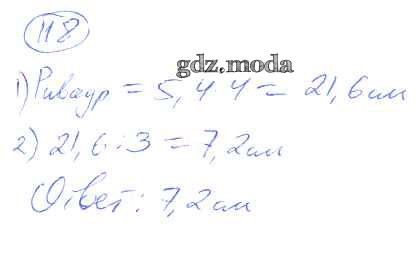 118
gdz.moda
1) Pквадр = 5,4 4 = 21,6 см
2) 21,6 : 3 = 7,2 см
Ответ: 7,2 см